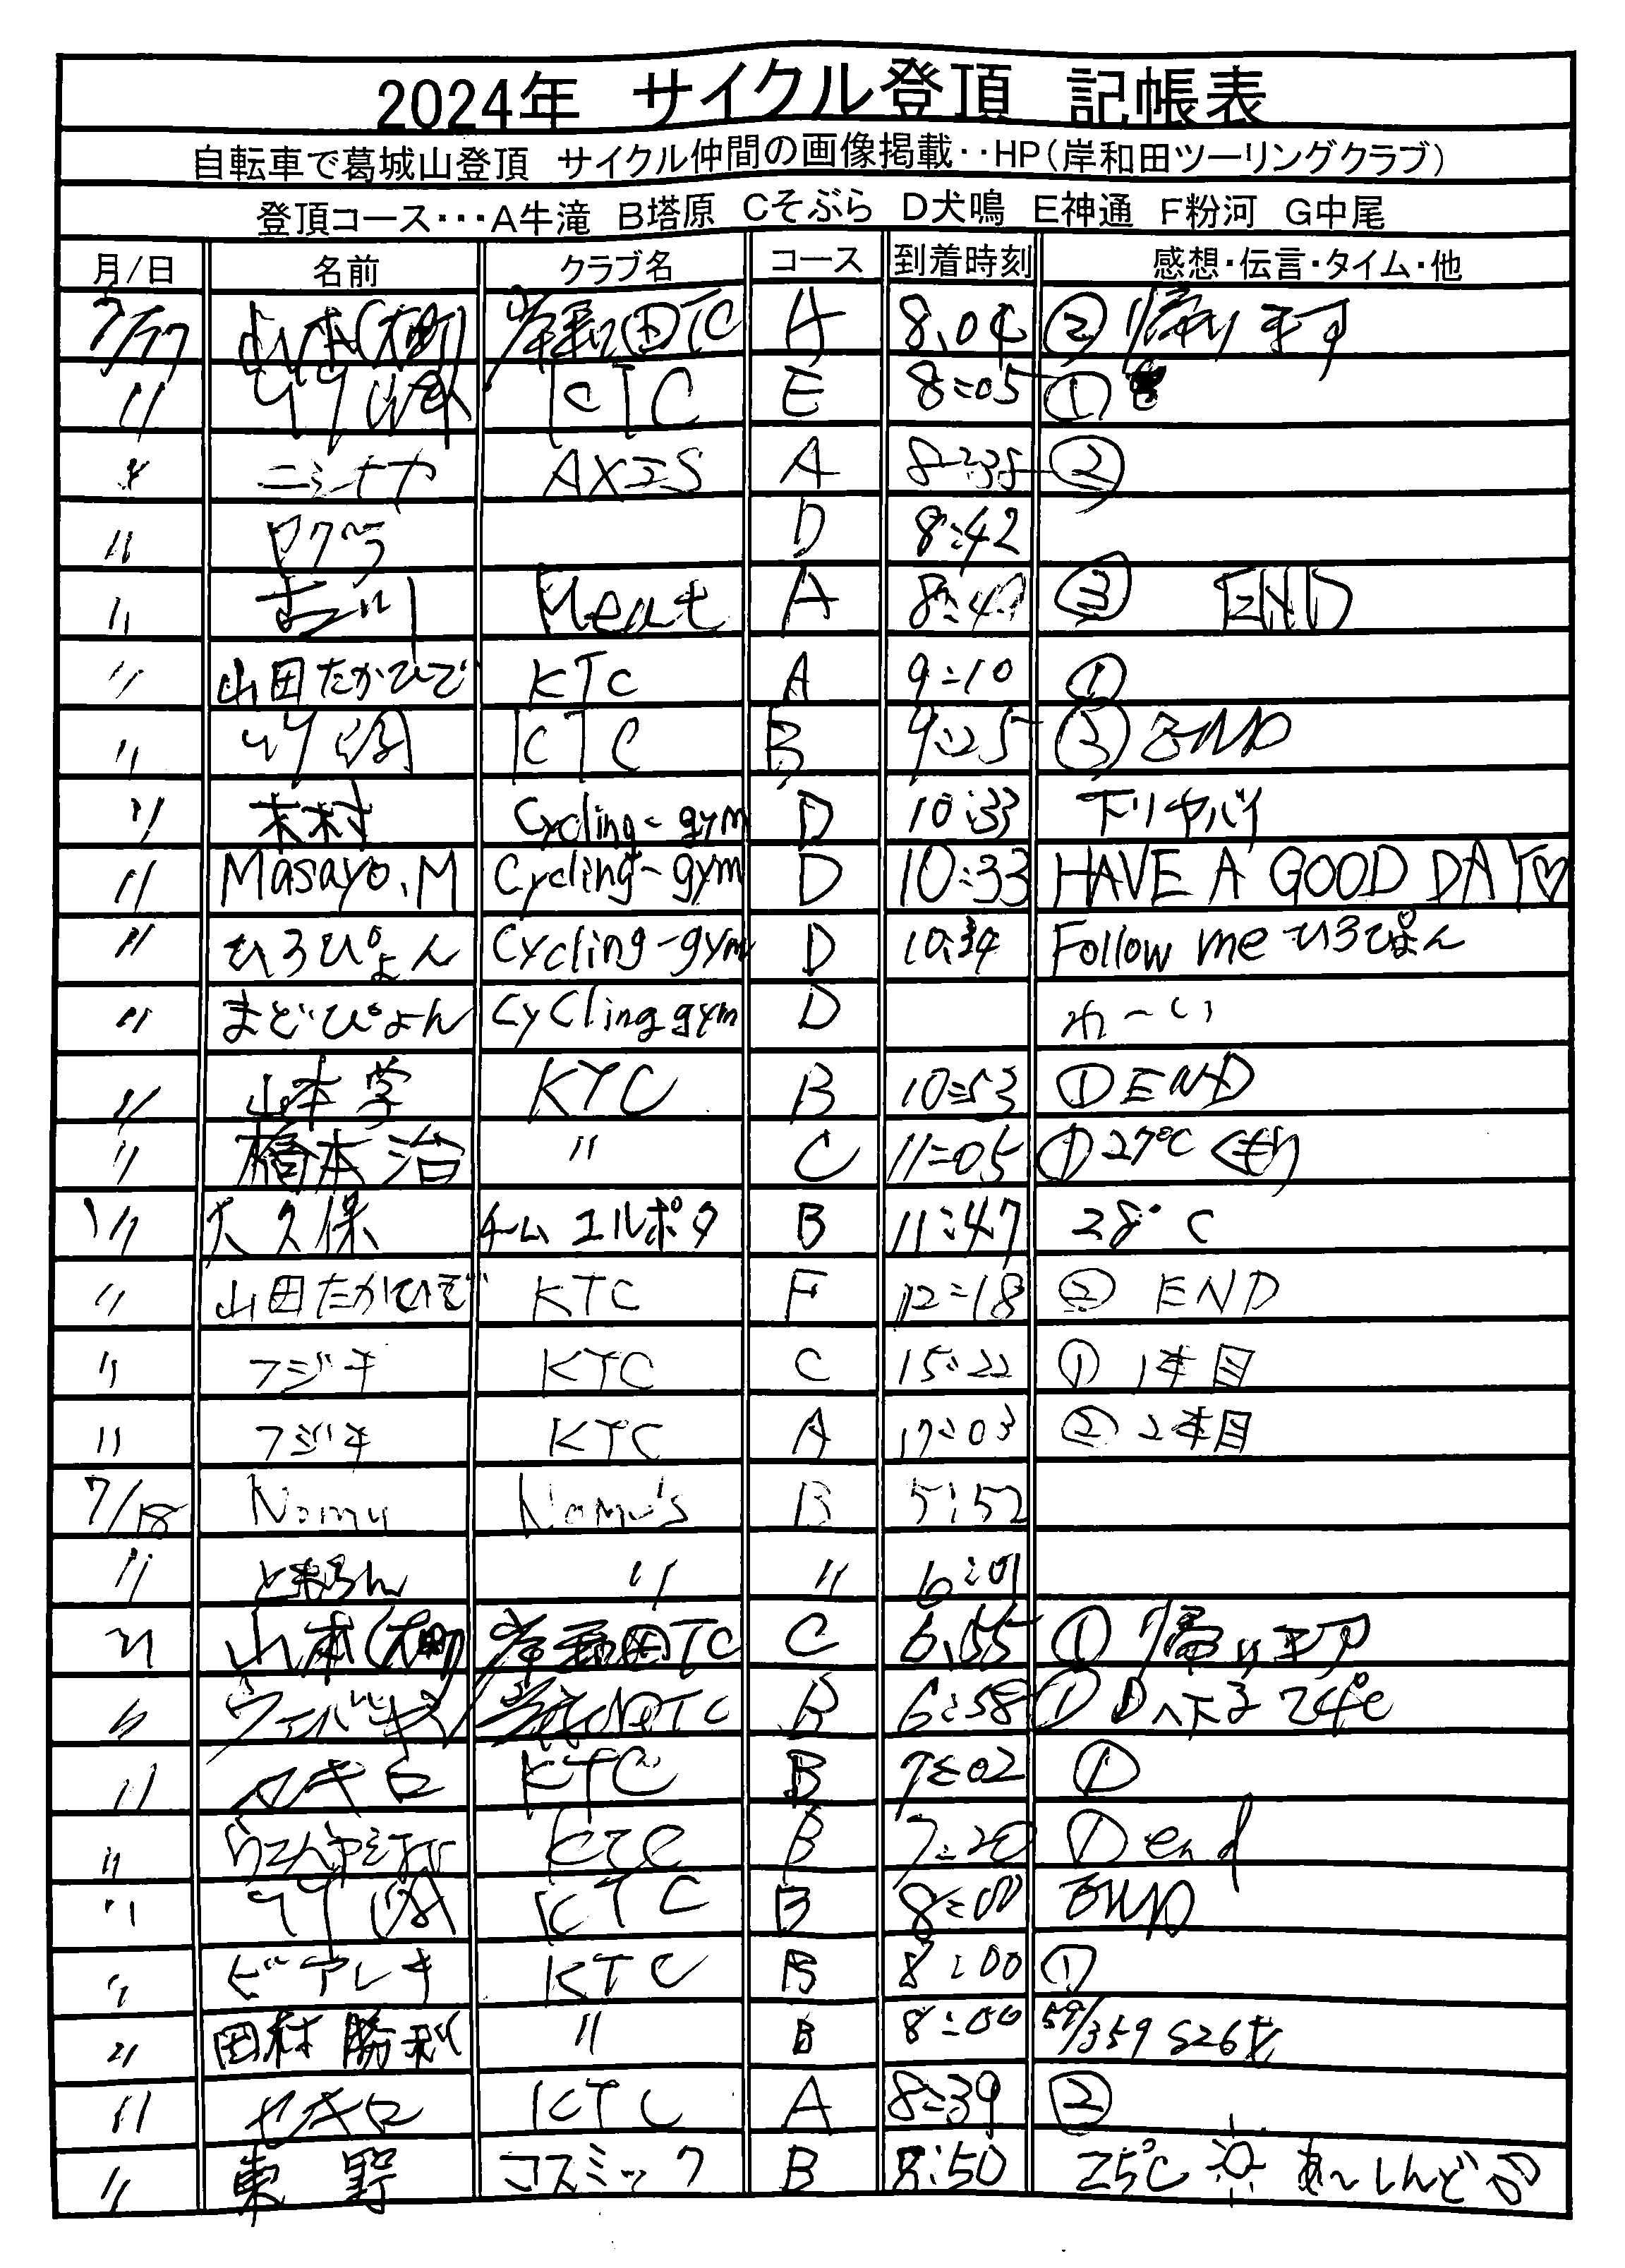 2024年 サイクル登頂 記帳表
自転車で葛城山登頂 サイクル仲間の画像掲載‥HP(岸和田ツーリングクラブ)
登頂コース・・・A牛滝 B塔原 Cそぶら D犬鳴 E神通 F粉河 G中尾
月/日 名前 クラブ名 コース 到着時刻 感想・伝言・タイム・他
7/17 山本(大町) 岸和田TC A 8.04 ② 帰ります
〃 KTC E 8:05 ①
〃 ニシナカ A 8:38 ②
〃 D 8:42
〃 吉川 Heat A ③ END
〃 山田たかひで KTC A 9:10 ①
〃 KTC B 9:25 ③ END
〃 木村 Cycling-gym D 10:33 下りヤバイ
〃 Masayo.M Cycling-gym D 10:33 HAVE A GOOD DAY♡
〃 ひろぴょん Cycling-gym D 10:34 Follow me ひろぴょん
〃 まどぴょん Cycling gym D わ~い
〃 山本 学 KTC B 10:53 ① END
〃 橋本 治 〃 C 11:05 ① 27℃ くもり
〃 大久保 チーム エルポタ B 11:47 28°C
〃 山田たかひで KTC F 12:18 ② END
〃 フジキ KTC C 15:22 ① 1本目
〃 フジキ KTC A 17:03 ② 2本目
7/18 Nomu Nomu's B 5:52
〃 とまろん 〃 〃 6:01
〃 山本(大町) 岸和田TC C 6.55 ① 帰ります
〃 岸和田TC B 6:58 ① Dへ下る 24℃
〃 マキロ KTC B 7:02 ①
〃 KTC B 7:20 ① end
〃 KTC B 8:00 END
〃 ビアレキ KTC B 8:00 ①
〃 田村 勝利 〃 B 8:00 59/359 S26才
〃 KTC A 8:39 ②
〃 東 野 コスミック B 8:50 25℃ ☼ あ~しんど